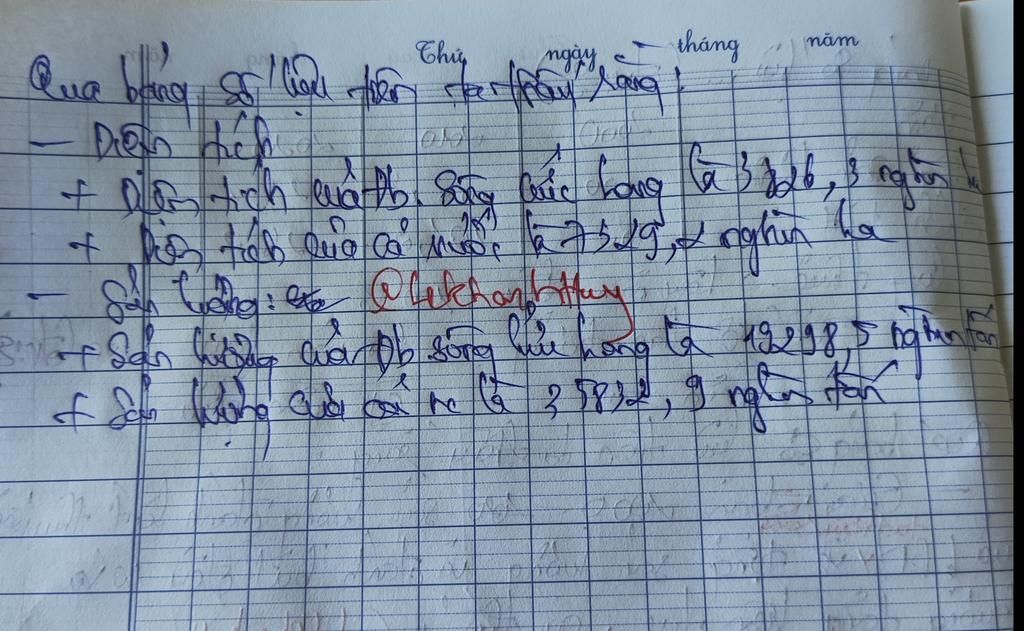 Thứ ngày tháng năm
Qua bảng số liệu trên ta thấy rằng:
- Diện tích
+ Diện tích của Đb. Sông Cửu Long là 3826,3 nghìn ha
+ Diện tích của cả nước là 7329,2 nghìn ha
- Sản lượng: @lekhanhHuy
+ Sản lượng của Đb sông Cửu Long là 19298,5 nghìn tấn
+ Sản lượng của cả nc là 35832,9 nghìn tấn